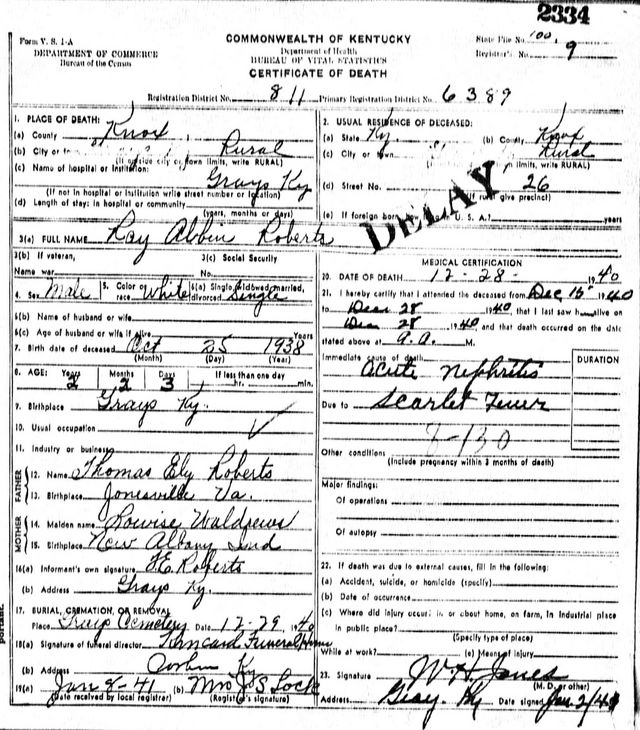 2334
Form V. S. 1-A
DEPARTMENT OF COMMERCE
Bureau of the Census
COMMONWEALTH OF KENTUCKY
Department of Health
BUREAU OF VITAL STATISTICS
CERTIFICATE OF DEATH
State File No. 100
Registrar's No. 9
Registration District No. 811 Primary Registration District No. 6389
1. PLACE OF DEATH:
(a) County Knox
(b) City or Rural
(If outside city or town limits, write RURAL)
(c) Name of hospital or institution:
Grays Ky
(If not in hospital or institution write street number or location)
(d) Length of stay: in hospital or community
(years, months or days)
2. USUAL RESIDENCE OF DECEASED:
(a) State Ky. (b) County Knox
(c) City or town Rural
limits, write RURAL)
(d) Street No. 26
(If rural give precinct)
(e) If foreign born, U. S. A.? years
DELAY
3(a) FULL NAME Ray Albin Roberts
3(b) If veteran, 3(c) Social Security
Name war No.
4. Sex Male 5. Color or race White 6(a) Single, widowed, married, divorced Single
6(b) Name of husband or wife
6(c) Age of husband or wife if alive Years
7. Birth date of deceased Oct 25 1938
(Month) (Day) (Year)
8. AGE: Years Months Days If less than one day
2 2 3 hr. min.
9. Birthplace Grays Ky.
10. Usual occupation
11. Industry or business
FATHER
12. Name Thomas Ely Roberts
13. Birthplace Jonesville Va.
MOTHER
14. Maiden name Lowise Waldrews
15. Birthplace New Albany Ind
16(a) Informant's own signature T.E. Roberts
(b) Address Grays Ky.
17. BURIAL, CREMATION, OR REMOVAL
Place Cemetery 12-29, 1940
18(a) Signature of funeral director Funeral Home
(b) Address Corbin Ky
19(a) Jan 8-41 (b) Mrs J S Lock
Date received by local registrar) (Registrar's signature)
MEDICAL CERTIFICATION
20. DATE OF DEATH 12-28- 1940
21. I hereby certify that I attended the deceased from Dec 15 1940
to Dec 28 1940, that I last saw him alive on
Dec 28 1940 and that death occurred on the date
stated above at a.a. M.
Immediate cause of death
Acute Nephritis
DURATION
Due to Scarlet Fever
8-130
Other conditions
(Include pregnancy within 3 months of death)
Major findings:
Of operations
Of autopsy
22. If death was due to external causes, fill in the following:
(a) Accident, suicide, or homicide (specify)
(b) Date of occurrence
(c) Where did injury occur: in or about home, on farm, in industrial place
in public place?
(Specify type of place)
While at work? (e) Means of injury
23. Signature W H Jones
(M. D. or other)
Address Gray, Ky Date signed Jan 2/41
portant.